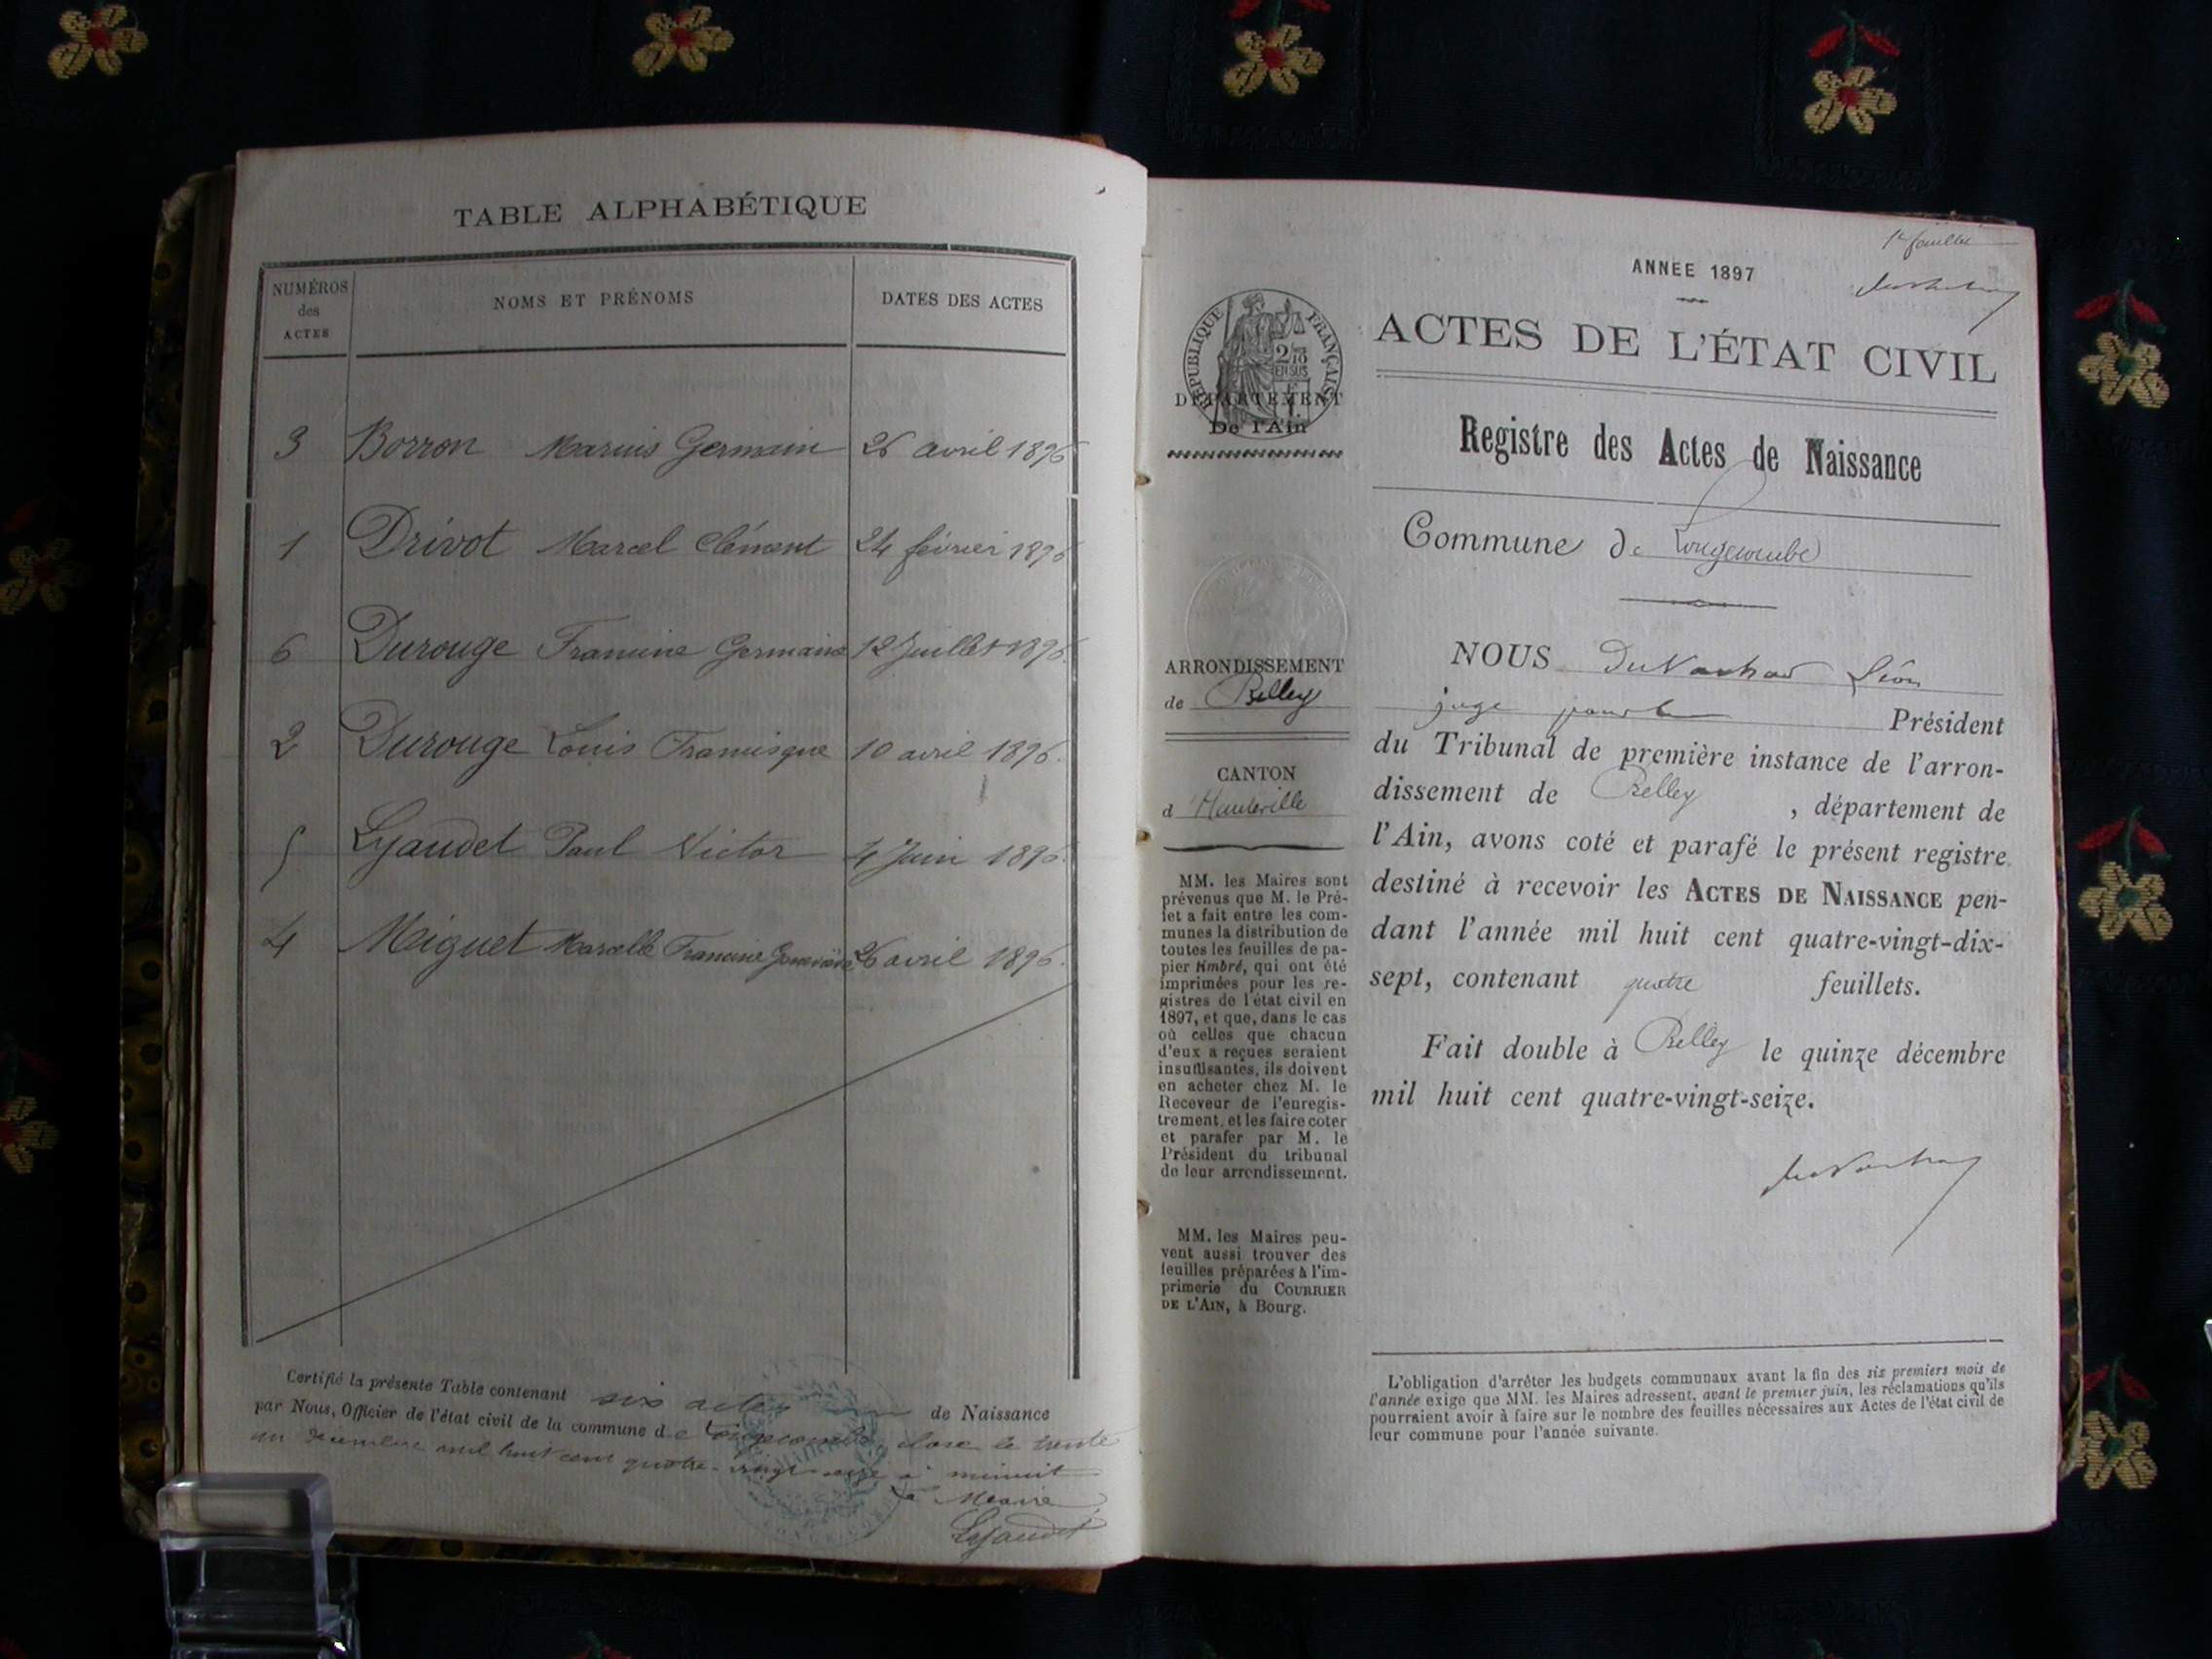 TABLE ALPHABÉTIQUE
NUMÉROS des ACTES
NOMS ET PRÉNOMS
DATES DES ACTES
3 Borron Marius Germain 26 avril 1896
1 Drivot Marcel Clément 24 février 1896
6 Durouge Francine Germaine 12 Juillet 1896.
2 Durouge Louis Francisque 10 avril 1896.
5 Lyaudet Paul Victor 4 Juin 1896.
4 Miguet Marcelle Francine Geneviève 26 avril 1896.
Certifié la présente Table contenant six actes de Naissance
par Nous, Officier de l'état civil de la commune de Longecombe close le trente
un décembre mil huit cent quatre-vingt seize à minuit
Le Maire
Lyaudet
1er feuillet
ANNÉE 1897
ACTES DE L'ÉTAT CIVIL
RÉPUBLIQUE FRANÇAISE
2/10 EN SUS
DÉPARTEMENT
De l'Ain
Registre des Actes de Naissance
Commune de Longecombe
ARRONDISSEMENT
de Belley
CANTON
d'Hauteville
MM. les Maires sont
prévenus que M. le Pré-
fet a fait entre les com-
munes la distribution de
toutes les feuilles de pa-
pier timbré, qui ont été
imprimées pour les re-
gistres de l'état civil en
1897, et que, dans le cas
où celles que chacun
d'eux a reçues seraient
insuffisantes, ils doivent
en acheter chez M. le
Receveur de l'enregis-
trement, et les faire coter
et parafer par M. le
Président du tribunal
de leur arrondissement.
MM. les Maires peu-
vent aussi trouver des
feuilles préparées à l'im-
primerie du COURRIER
DE L'AIN, à Bourg.
NOUS Léon
juge pour le Président
du Tribunal de première instance de l'arron-
dissement de Belley, département de
l'Ain, avons coté et parafé le présent registre
destiné à recevoir les ACTES DE NAISSANCE pen-
dant l'année mil huit cent quatre-vingt-dix-
sept, contenant quatre feuillets.
Fait double à Belley le quinze décembre
mil huit cent quatre-vingt-seize.
L'obligation d'arrêter les budgets communaux avant la fin des six premiers mois de
l'année exige que MM. les Maires adressent, avant le premier juin, les réclamations qu'ils
pourraient avoir à faire sur le nombre des feuilles nécessaires aux Actes de l'état civil de
leur commune pour l'année suivante.